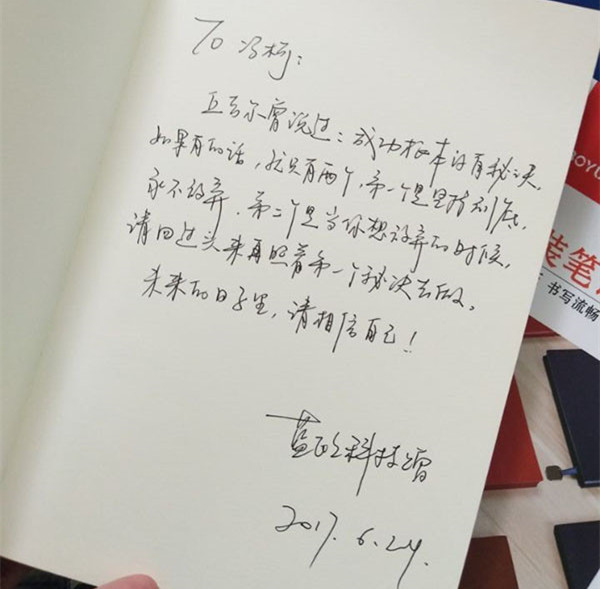 To 冯柯：
丘吉尔曾说过：成功根本没有秘诀，
如果有的话，就只有两个，第一个是坚持到底，
永不放弃，第二个是当你想放弃的时候，
请回过头来再照着第一个秘诀去做。
未来的日子里，请相信自己！
蓝欧科技
2017.6.24.
OYU
装笔
书写流畅